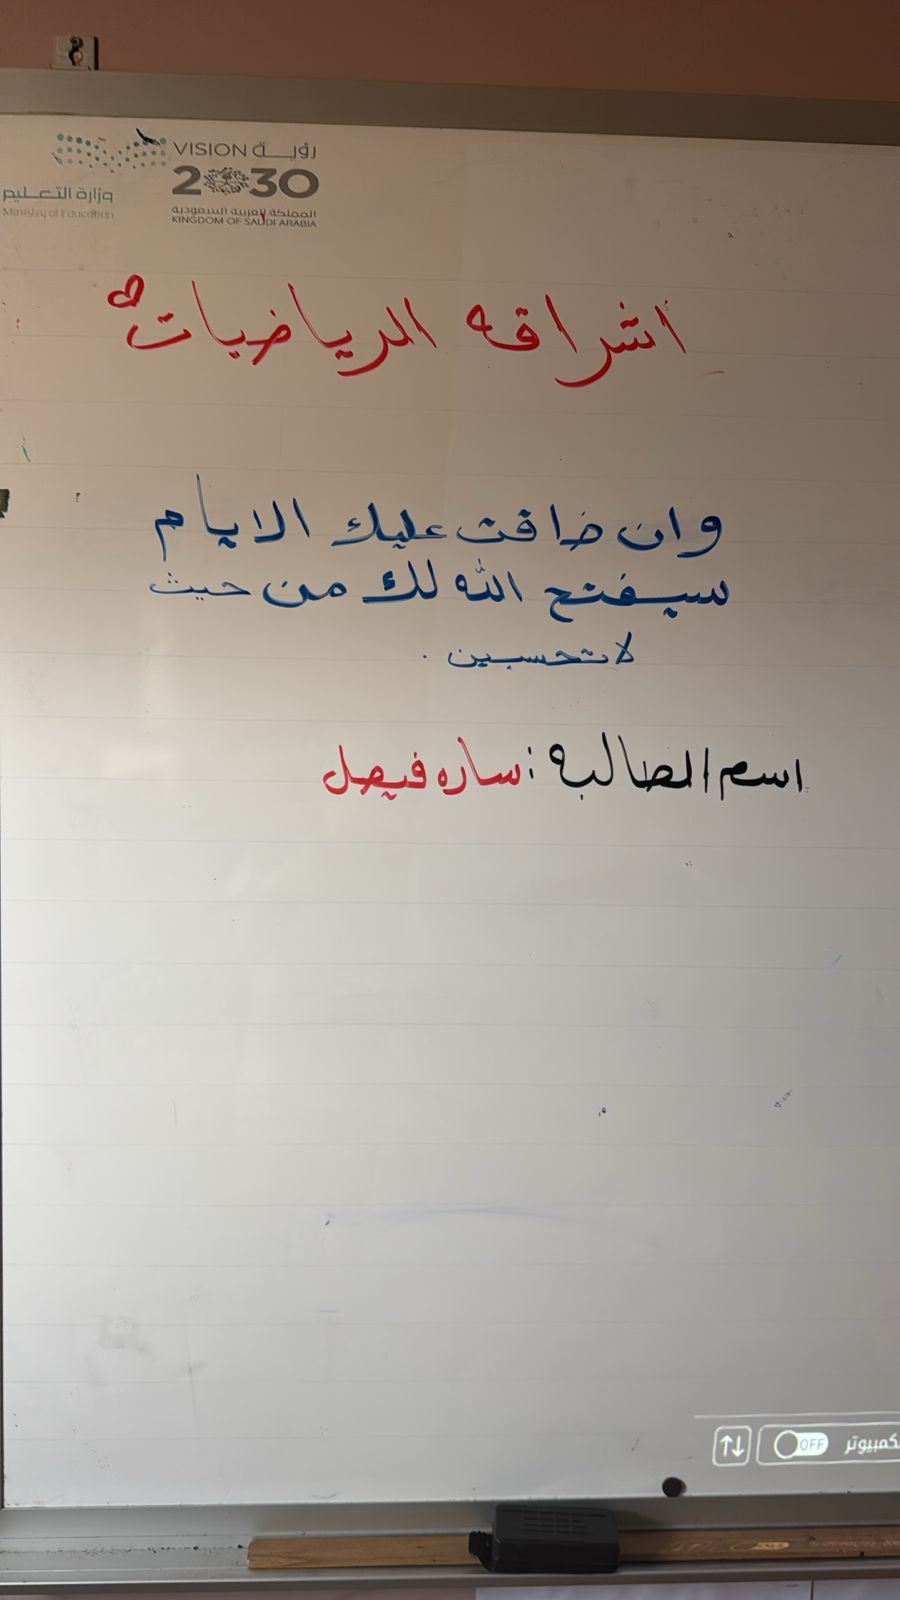 رؤيــة VISION
2030
المملكة العربية السعودية
KINGDOM OF SAUDI ARABIA
وزارة التعليم
Ministry of Education
اشراقه الرياضيات
وان ضاقت عليك الايام
سيفتح الله لك من حيث
لاتحسبين .
اسم الطالبه : ساره فيصل
OFF